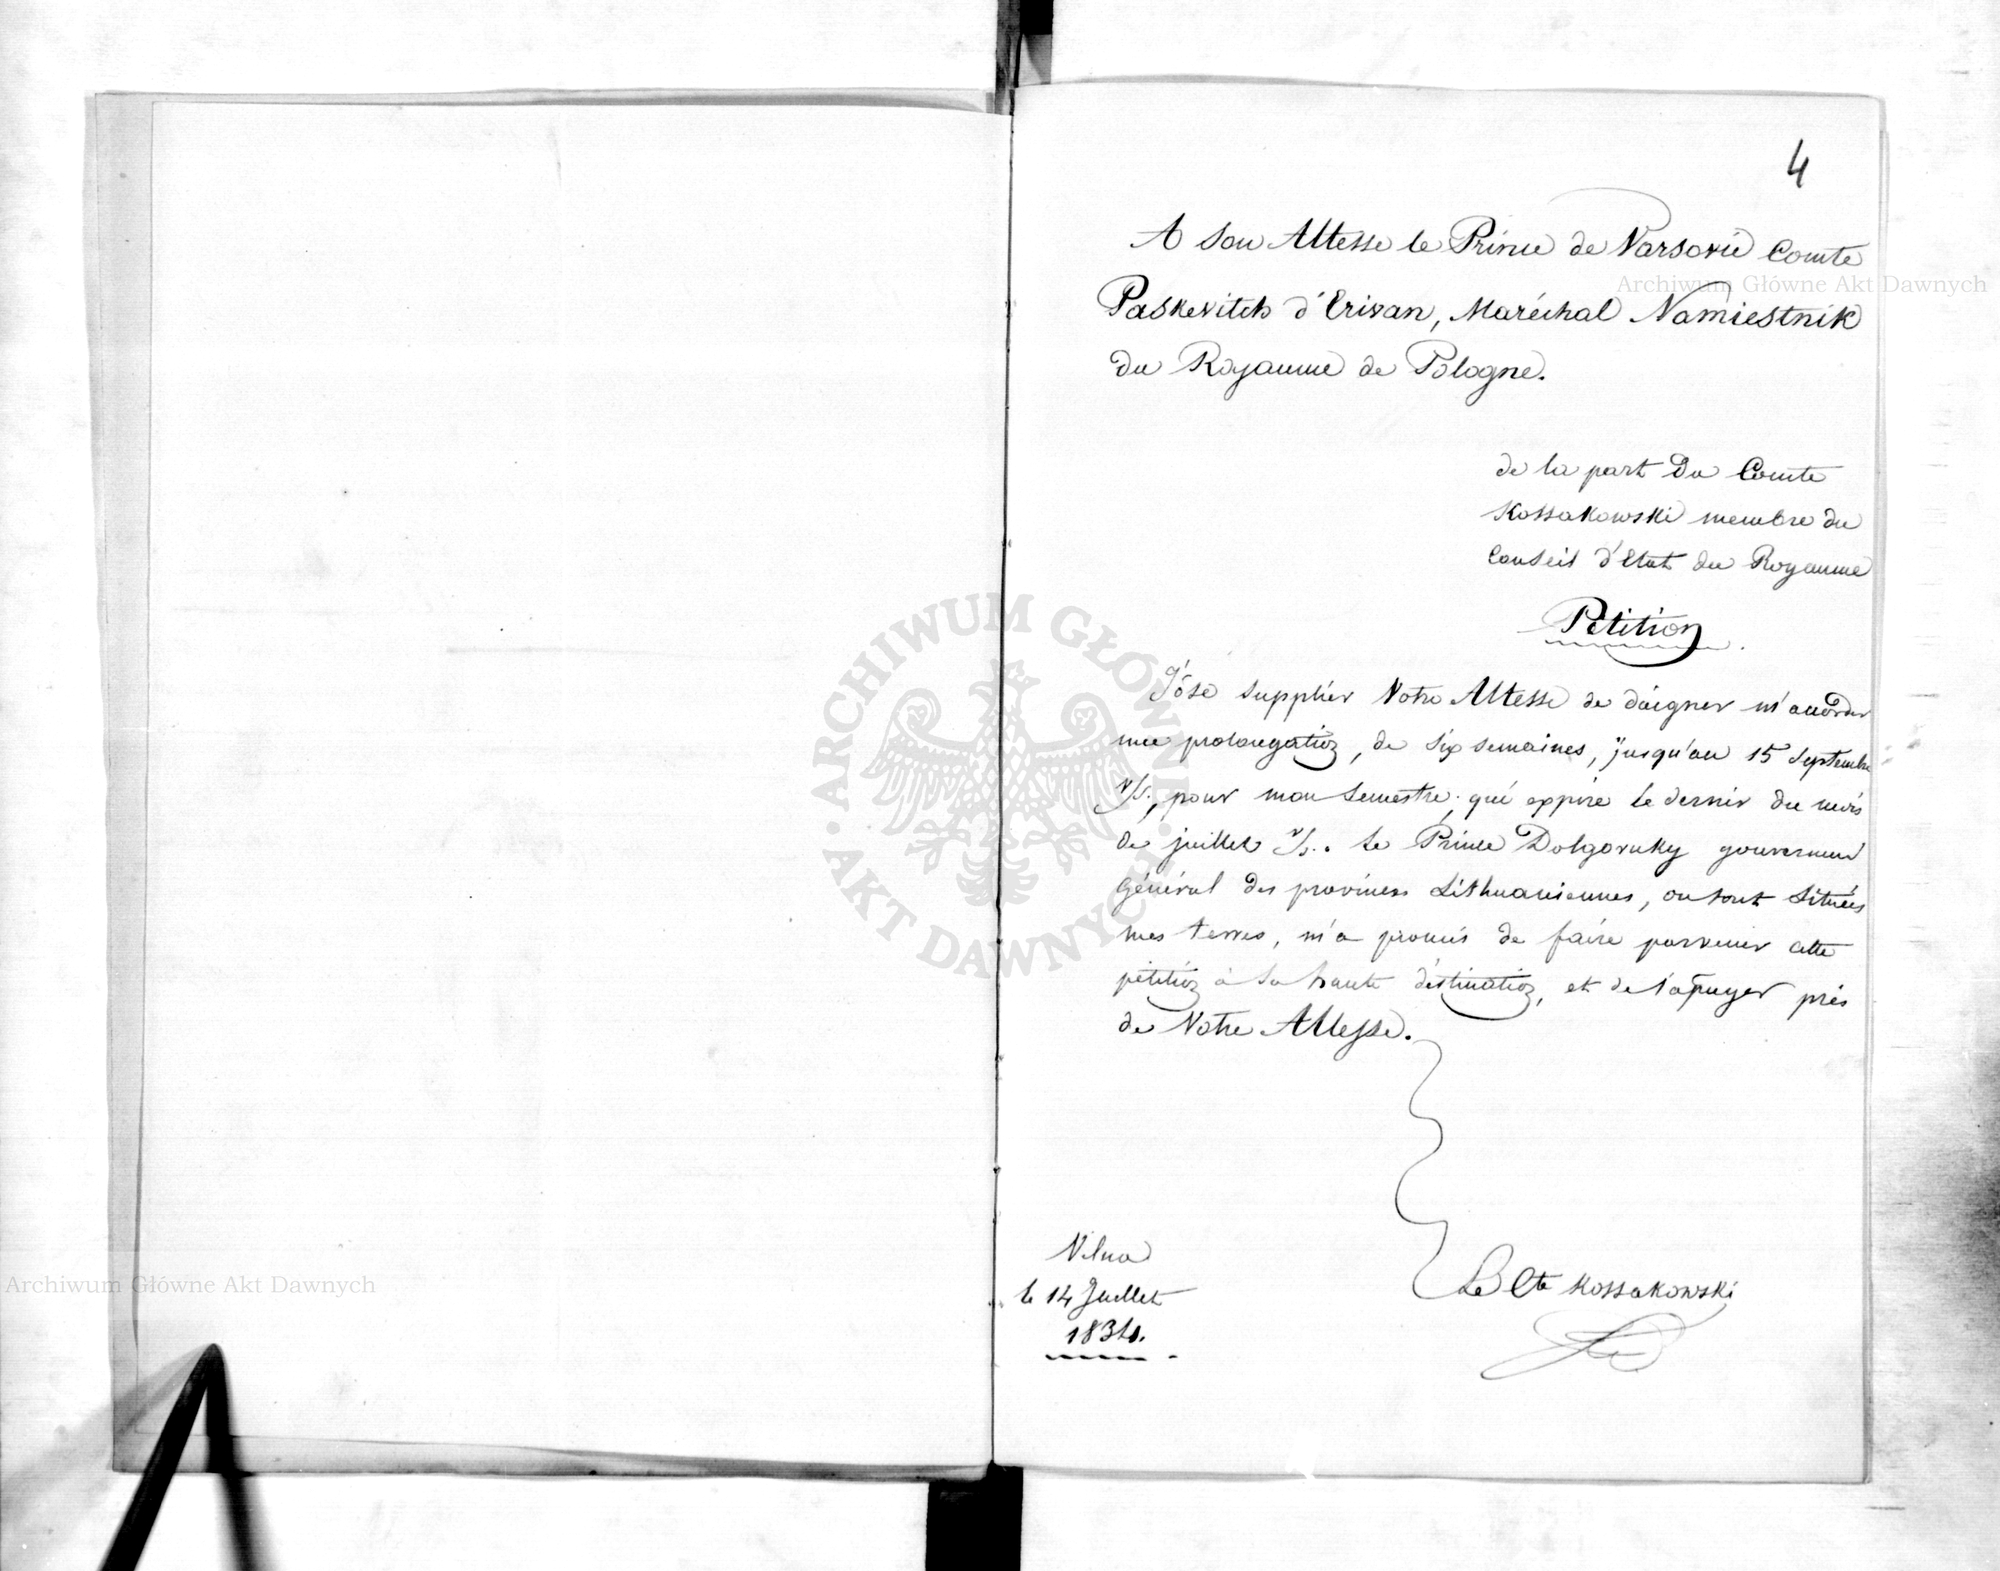 4
A Son Altesse le Prince de Varsovie Comte
Paskevitch d'Erivan, Maréchal Namiestnik
du Royaume de Pologne.
de la part du Comte
Kossakowski membre du
Conseil d'Etat du Royaume
Petition
J'ôse supplier Votre Altesse de daigner m'accorder
une prolongation, de six semaines, jusqu'au 15 Septembre
v/s., pour mon semestre, qui expire le dernier du mois
de juillet v/s. Le Prince Dolgoruky gouverneur
général des provinces Lithuaniennes, ou sont situées
mes terres, m'a promis de faire parvenir cette
pétition à sa haute déstination, et de l'apuyer près
de Votre Altesse.
Vilna
le 14 Juillet
1834.
Le Cte Kossakowski
Archiwum Główne Akt Dawnych
Archiwum Główne Akt Dawnych
ARCHIWUM GŁÓWNE · AKT DAWNYCH ·